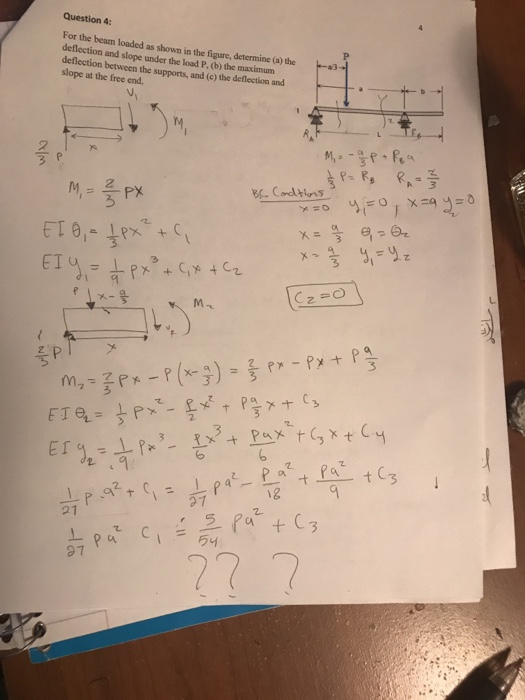 Question 4:
4
For the beam loaded as shown in the figure, determine (a) the
deflection and slope under the load P, (b) the maximum
deflection between the supports, and (c) the deflection and
slope at the free end.
P
a/3
a
b
L
R_A
V₁
M₁
2/3 P
x
M₁ = -a/3 P + R_B a
1/3 P = R_B R_A = 2/3
M₁ = 2/3 Px
BC Condtions
x=0 y₁=0, x=a y₂=0
EI θ₁ = 1/3 Px² + C₁
x = a/3 θ₁ = θ₂
EI y₁ = 1/9 Px³ + C₁x + C₂
x = a/3 y₁ = y₂
P x-a/3
M₂
C₂=0
2/3 P
x
M₂ = 2/3 Px - P(x-a/3) = 2/3 Px - Px + P a/3
EI θ₂ = 1/3 Px² - P/2 x² + Pa/3 x + C₃
EI y₂ = 1/9 Px³ - Px³/6 + Pax²/6 + C₃x + C₄
1/27 P a² + C₁ = 1/27 Pa² - Pa²/18 + Pa²/9 + C₃
1/27 Pa² C₁ = 5/54 Pa² + C₃
?? ?